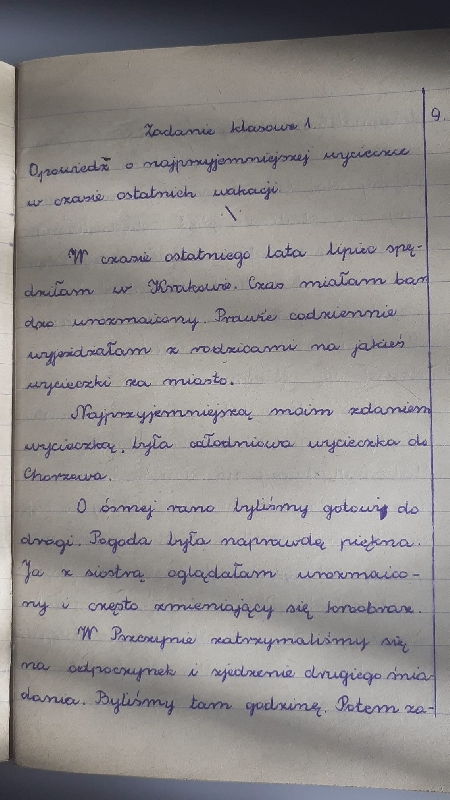 Zadanie klasowe 1.
9.
Opowiedź o najprzyjemniejszej wycieczce
w czasie ostatnich wakacji.
\
W czasie ostatniego lata lipiec spę-
dziłam w Krakowie. Czas miałam bar
dzo urozmaicony. Prawie codziennie
wyjeżdżałam z rodzicami na jakieś
wycieczki za miasto.
Najprzyjemniejszą moim zdaniem
wycieczką, była całodniowa wycieczka do
Chorzowa.
O ósmej rano byliśmy gotowi do
drogi. Pogoda była naprawdę piękna.
Ja z siostrą oglądałam urozmaico-
ny i często zmieniający się krajobraz.
W Pszczynie zatrzymaliśmy się
na odpoczynek i zjedzenie drugiego śnia-
dania. Byliśmy tam godzinę. Potem za-